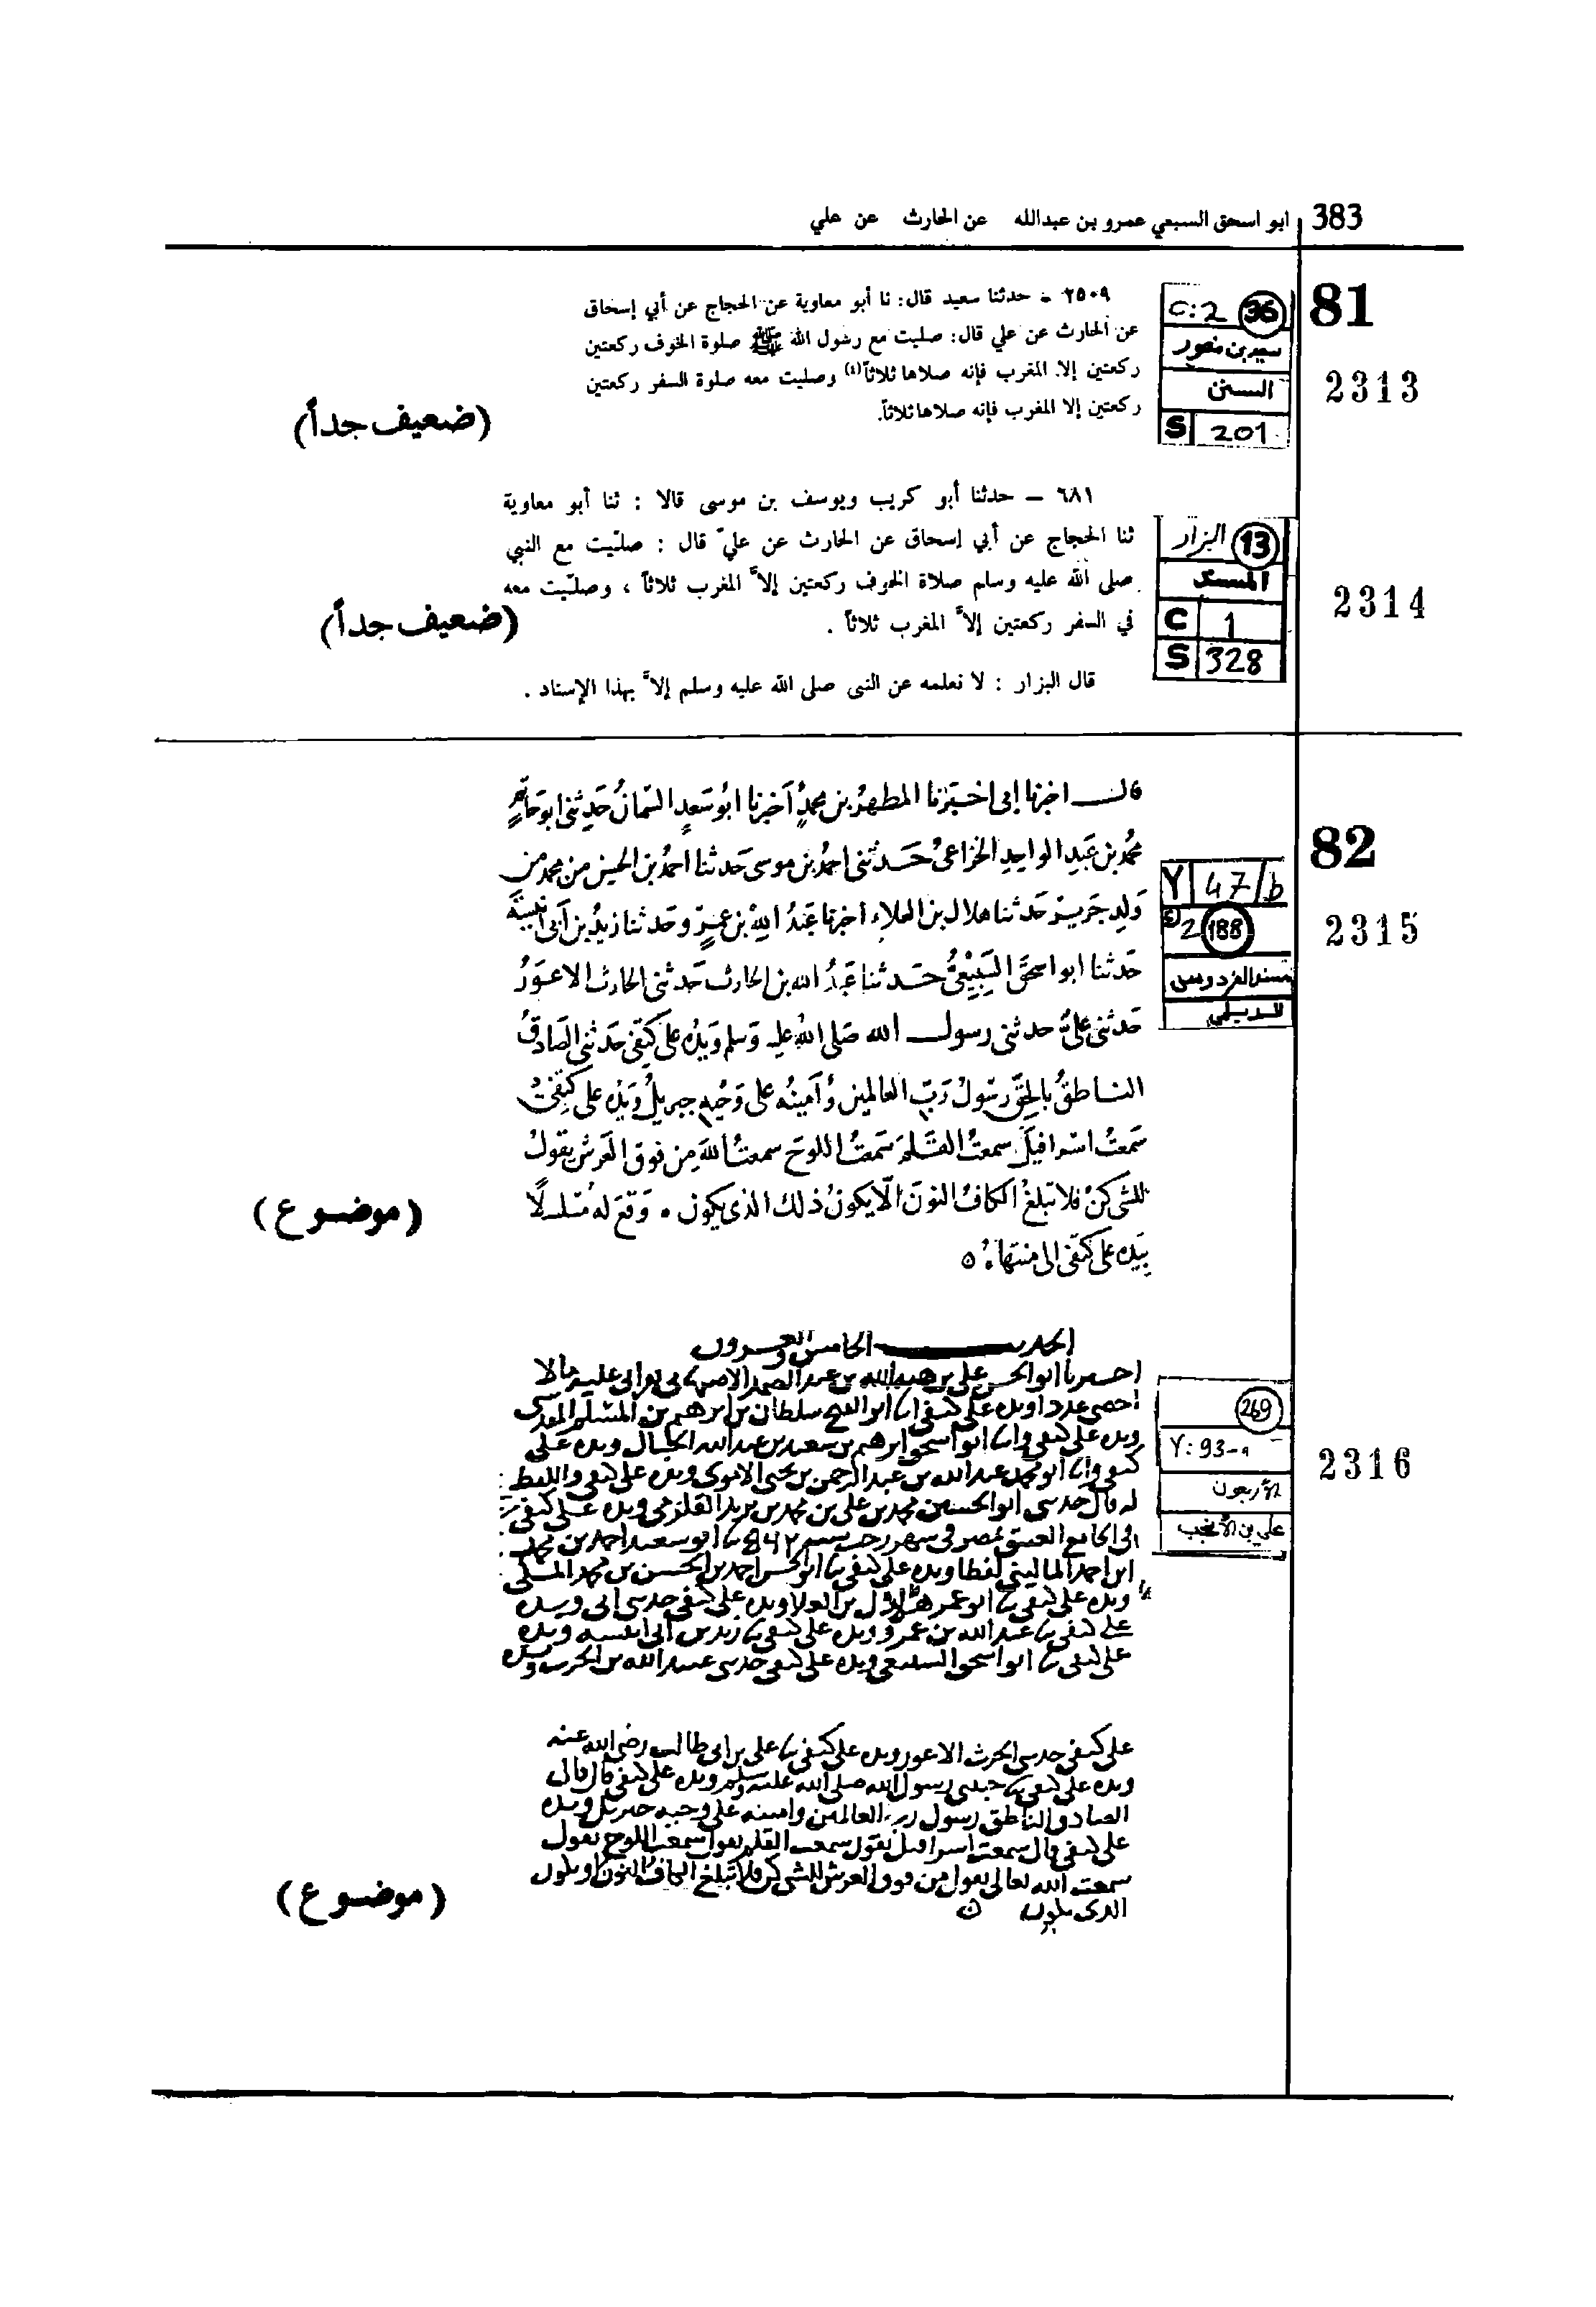 383 ابو اسحق السبعي عمرو بن عبدالله عن الحارث عن علي
81
C:2 36
سعيد بن منصور
السنن
S 201
2313
٢٥٠٩ - حدثنا سعيد قال: نا أبو معاوية عن الحجاج عن أبي إسحاق
عن الحارث عن علي قال: صليت مع رسول الله ﷺ صلوة الخوف ركعتين
ركعتين إلا المغرب فإنه صلاها ثلاثاً(٤) وصليت معه صلوة السفر ركعتين
ركعتين إلا المغرب فإنه صلاها ثلاثاً.
(ضعيف جداً)
13 البزار
المسند
C 1
S 328
2314
٦٨١ - حدثنا أبو كريب ويوسف بن موسى قالا : ثنا أبو معاوية
ثنا الحجاج عن أبي إسحاق عن الحارث عن عليّ قال : صلّيت مع النبي
صلى الله عليه وسلم صلاة الخوف ركعتين إلاَّ المغرب ثلاثاً ، وصلّيت معه
في السفر ركعتين إلاَّ المغرب ثلاثاً .
(ضعيف جداً)
قال البزار : لا نعلمه عن النبى صلى الله عليه وسلم إلاَّ بهذا الإسناد .
82
Y 47/b
2 188
مسند الفردوس
الديلمي
2315
قال اخبرنا إبى اخبَرَنا المطهرُ بن محمدٍ أخبرنا ابوُ سَعدٍ السّمانُ حَدِثنى ابو حَاتمٍ
محمُد بن عَبدِ الواحِدِ الخزاعىُّ حَدثنى احمدُ بن موسى حَدثنا احمدُ بن الحسين من محمد من
وَلدِ جَرير حَدثنا هلال بن العلاءِ أخبرنا عَبدُ اللهِ بن عمرٍو حَدثنا زيدُ بن أبى أنيسَة
حَدثنا ابو اسحقَ السَّبِيْعىُّ حَدثنا عَبدُ الله بن الحارث حَدثنى الحارث الاعوَرُ
حَدثنى علىٌّ حدثنى رسول الله صَلى اللهُ عليه وَسلم وَيَدُه على كَتِفى حَدثنى الصَادقُ
الناطقُ بالحقّ رسَولُ رَبّ العالمين وَأمينُه على وَحْيِهِ جبريلُ وَيَدُه على كَتِفى
سَمعتُ اسْرافيلَ سمعتُ القلمَ سَمعتُ اللوحَ سمعتُ اللهَ مِن فوق العَرش يقولُ
للشى كنْ فلا تبلغُ الكافُ النونَ الّا يكونُ ذلك الذى يكون . وَقعَ لهُ مُتسلسلًا
بيَدِه على كتفى الى منتهاهُ
(موضوع)
269
Y: 93-a
الأربعون
علي بن الأنجب
2316
الحديث الخامس والعشرون
اخبرنا ابو الحسن على بن هبة الله بن عبد الصمد الاصبهانى
احصى عددا ويده على كتفى انا ابو الفتح سلطان بن ابرهيم بن المسلم المقدسى
ويده على كتفى وانا ابو اسحق ابرهيم بن سعيد بن عبد الله الحبال ويده على
كتفى وانا ابو محمد عبد الله بن عبد الرحمن بن يحيى الاموى ويده على كتفى واللفظ
له قال حدثنى ابو الحسين محمد بن على بن محمد بن يزيد القلزمى ويده على كتفى
فى الجامع العتيق بمصر فى شهر رجب ابو سعيد احمد بن محمد
ابن احمد المالينى لفظا ويده على كتفى ابو الحسن احمد بن الحسن بن محمد المكى
ويده على كتفى ابو عمر هلال بن العلا ويده على كتفى حدثنى ابى ويده
على كتفى عبد الله بن عمرو ويده على كتفى زيد بن ابى انيسه ويده
على كتفى ابو اسحق السبيعى ويده على كتفى حدثنى عبد الله بن الحرث ويده
على كتفى حدثنى الحرث الاعور ويده على كتفى على بن ابى طالب رضى الله عنه
ويده على كتفى حبيبى رسول الله صلى الله عليه وسلم ويده على كتفى قال قال
الصادق الناطق رسول رب العالمين وامينه على وحيه جبريل ويده
على كتفى قال سمعت اسرافيل يقول سمعت القلم يقول سمعت اللوح يقول
سمعت الله تعالى يقول من فوق العرش للشى كن فلا تبلغ الكاف النون او يكون
الذى يكون
(موضوع)